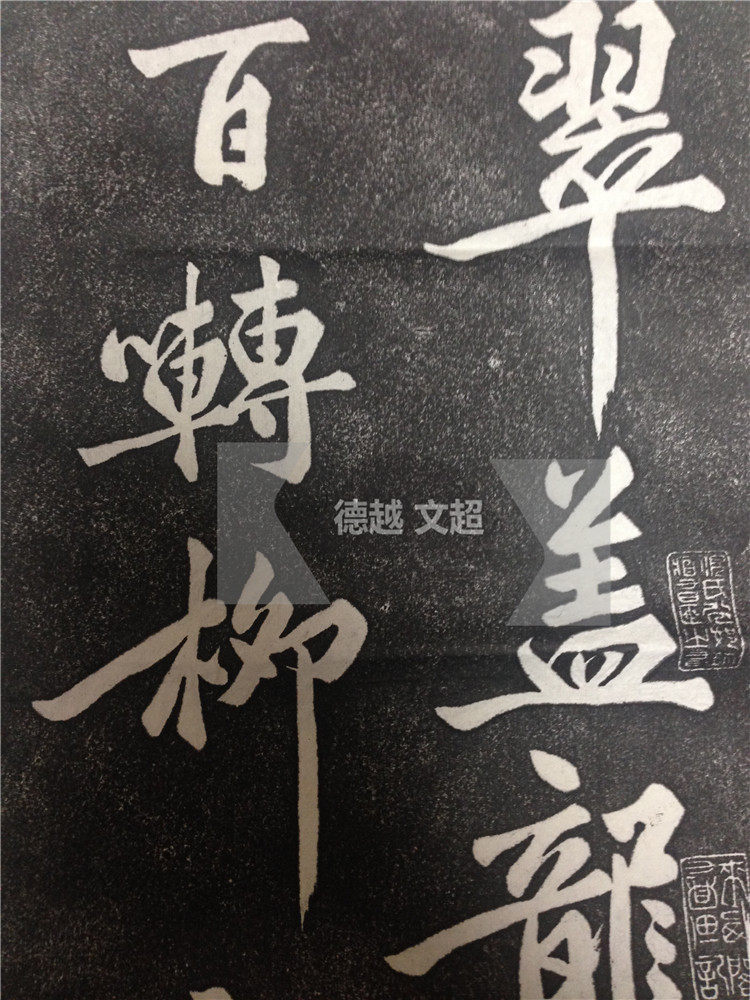 翠盖龍
百囀柳
德越 文超